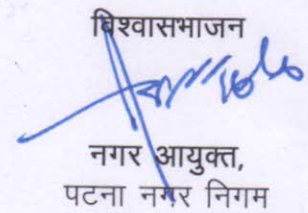 विश्वासभाजन
नगर आयुक्त,
पटना नगर निगम